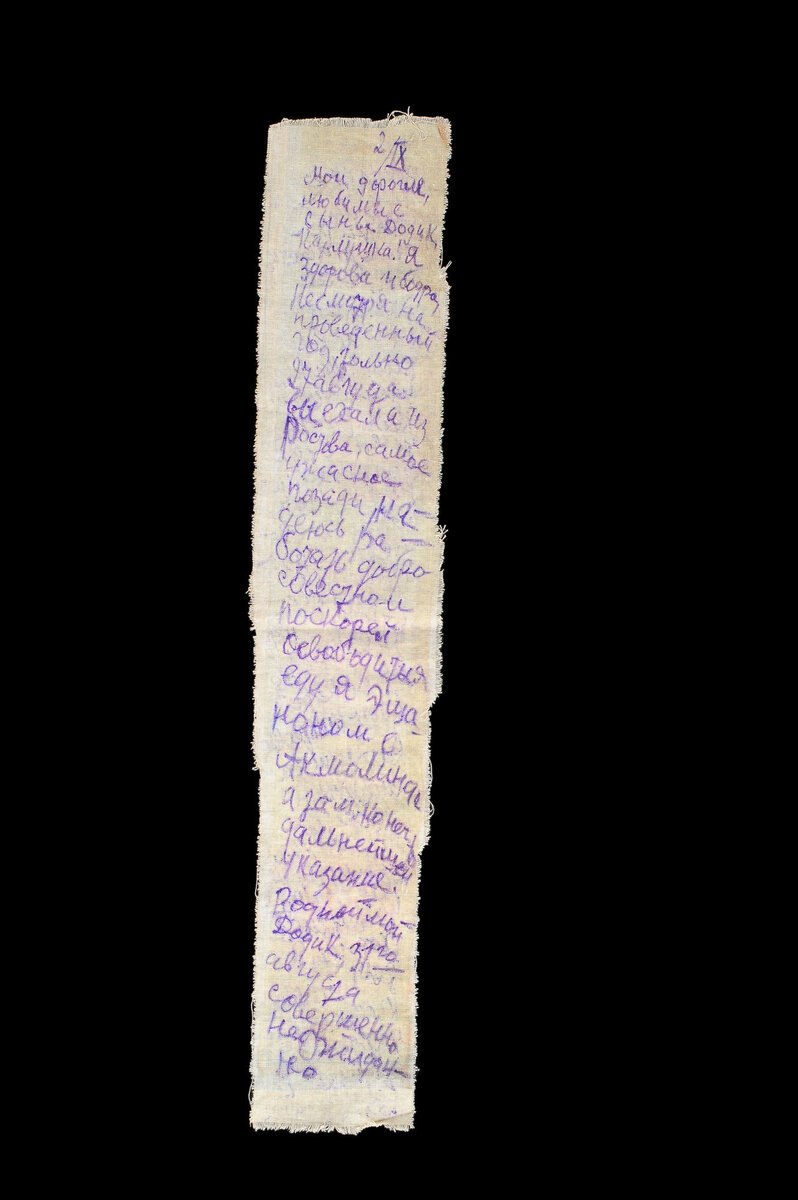 2/IX
Мои дорогие,
любимые
сыны. Додик,
Кармушка. Я
здорова и бодра,
Несмотря на
проведенный
год только
27 августа
выехала из
Роства, самое
ужасное
позади, На-
деюсь ра-
ботать добро
совестно и
поскорей
освободиться
еду я Эша-
ноном в
Акмолинск
а там конеч.
дальнейшей
указание.
Родной мой
Додик, 27го
августа
совершенно
неожидан-
но